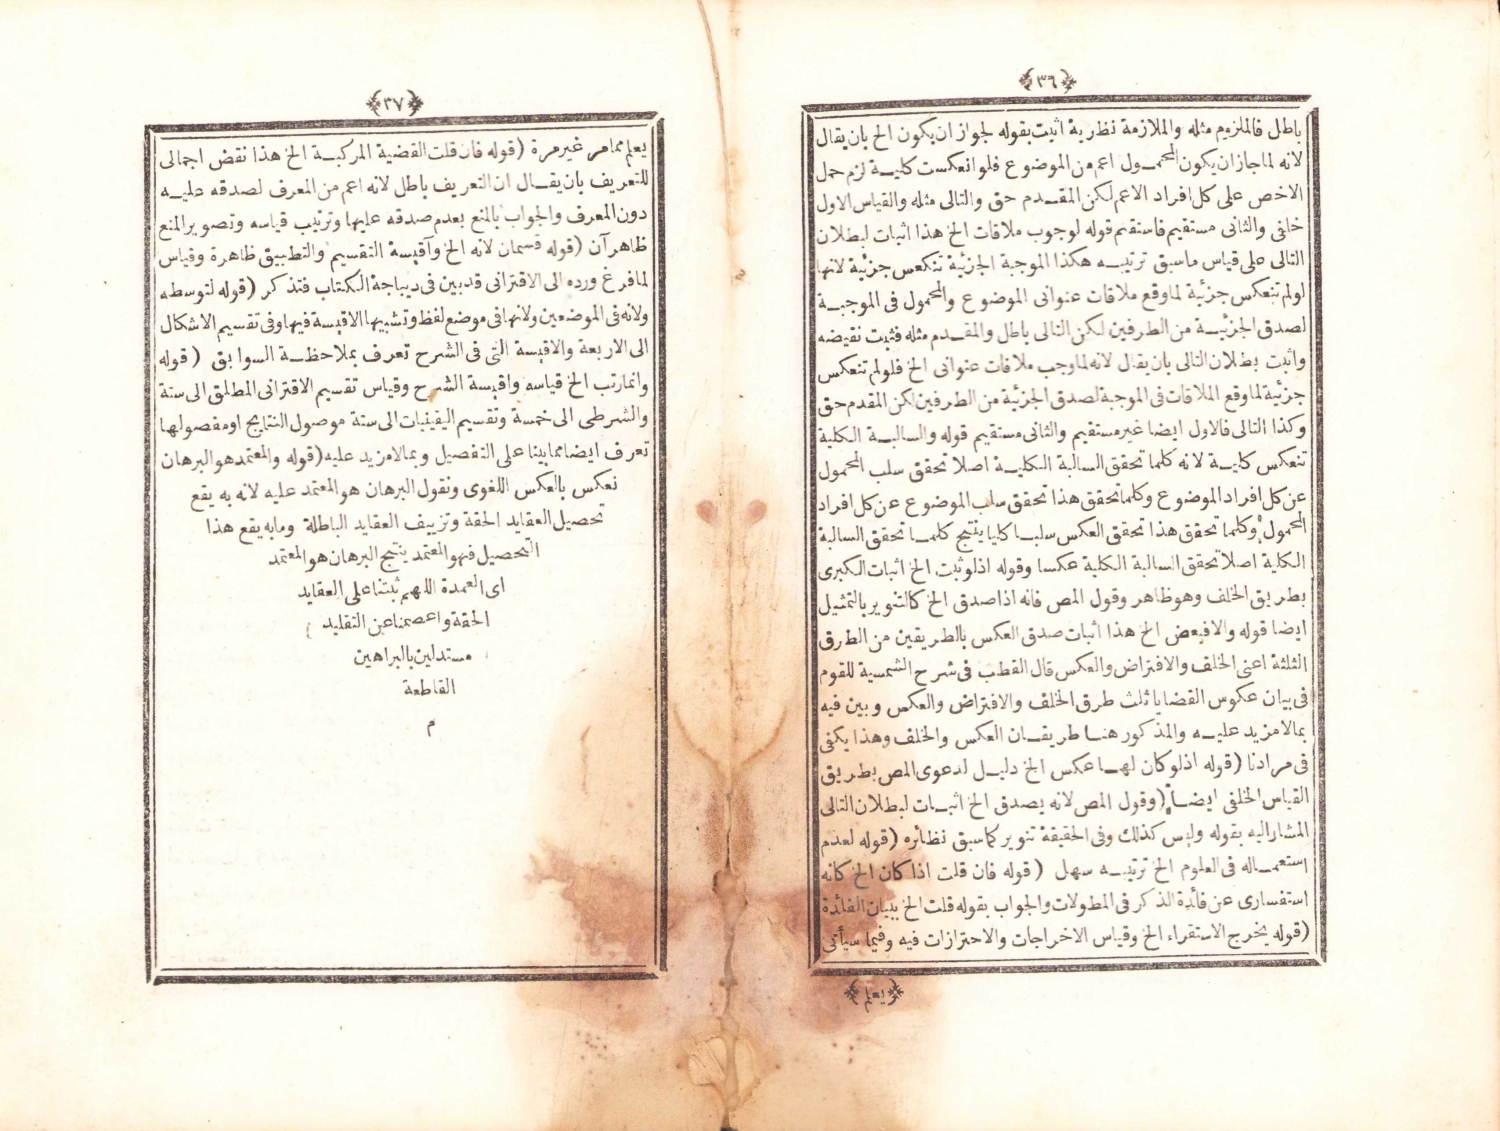 ﴿٣٦﴾
باطل فالملزوم مثله والملازمة نظرية اثبت بقوله لجواز ان يكون الخ بان يقال
لانه لما جاز ان يكون المحمول اعم من الموضوع فلو انعكست كلية لزم حمل
الاخص على كل افراد الاعم لكن المقدم حق والتالى مثله والقياس الاول
خلفى والثانى مستقيم فاستقم قوله لوجوب ملاقات الخ هذا اثبات لبطلان
التالى على قياس ما سبق ترتيبه هكذا الموجبة الجزئية تنعكس جزئية لانها
لو لم تنعكس جزئية لما وقع ملاقات عنوانى الموضوع والمحمول فى الموجبة
لصدق الجزئية من الطرفين لكن التالى باطل والمقدم مثله فثبت نقيضه
واثبت بطلان التالى بان يقال لانه لما وجب ملاقات عنوانى الخ فلو لم تنعكس
جزئية لما وقع الملاقات فى الموجبة لصدق الجزئية من الطرفين لكن المقدم حق
وكذا التالى فالاول ايضا غير مستقيم والثانى مستقيم قوله والسالبة الكلية
تنعكس كلية لانه كلما تحقق السالبة الكلية اصلا تحقق سلب المحمول
عن كل افراد الموضوع وكلما تحقق هذا تحقق سلب الموضوع عن كل افراد
المحمول وكلما تحقق هذا تحقق العكس سلبا كليا ينتج كلما تحقق السالبة
الكلية اصلا تحقق السالبة الكلية عكسا وقوله اذ لو ثبت الخ اثبات الكبرى
بطريق الخلف وهو ظاهر وقول المص فانه اذا صدق الخ كالتنوير بالتمثيل
ايضا قوله والا فبعض الخ هذا اثبات صدق العكس بالطريقين من الطرق
الثلثة اعنى الخلف والافتراض والعكس قال القطب فى شرح الشمسية للقوم
فى بيان عكوس القضايا ثلث طرق الخلف والافتراض والعكس وبين فيه
بما لا مزيد عليه والمذكور هنا طريقان العكس والخلف وهذا يكفى
فى مرادنا (قوله اذ لو كان لها عكس الخ دليل لدعوى المص بطريق
القياس الخلفى ايضا (وقول المص لانه يصدق الخ اثبات لبطلان التالى
المشار اليه بقوله وليس كذلك وفى الحقيقة تنوير كما سبق نظائره (قوله لعدم
استعماله فى العلوم الخ ترتيبه سهل (قوله فان قلت اذا كان الخ كانه
استفسارى عن فائدة الذكر فى المطولات والجواب بقوله قلت الخ ببيان الفائدة
(قوله يخرج الاستقراء الخ وقياس الاخراجات والاحترازات فيه وفيما سيأتى
﴿يعلم﴾
﴿٣٧﴾
يعلم مما مر غير مرة (قوله فان قلت القضية المركبة الخ هذا نقض اجمالى
للتعريف بان يقال ان التعريف باطل لانه اعم من المعرف لصدقه عليه
دون المعرف والجواب بالمنع بعدم صدقه عليها وترتيب قياسه وتصوير المنع
ظاهرآن (قوله قسمان لانه الخ وآقيسة التقسيم والتطبيق ظاهرة وقياس
لما فرغ ورده الى الاقترانى قد بين فى ديباجة الكتاب فتذكر (قوله لتوسطه
ولانه فى الموضعين ولانها فى موضع لفظ وتشبيها الاقيسة فيها وفى تقسيم الاشكال
الى الاربعة والاقيسة التى فى الشرح تعرف بملاحظة السوابق (قوله
وانما رتب الخ قياسه واقيسة الشرح وقياس تقسيم الاقترانى المطلق الى ستة
والشرطى الى خمسة وتقسيم اليقينيات الى ستة موصول النتايج او مفصولها
تعرف ايضا مما بينا على التفصيل وبما لا مزيد عليه (قوله والمعتمد هو البرهان
نعكس بالعكس اللغوى ونقول البرهان هو المعتمد عليه لانه به يقع
تحصيل العقايد الحقة وتزييف العقايد الباطلة وما به يقع هذا
التحصيل فهو المعتمد ينتج البرهان هو المعتمد
اى العمدة اللهم ثبتنا على العقايد
الحقة واعصمنا عن التقليد
مستدلين بالبراهين
القاطعة
م